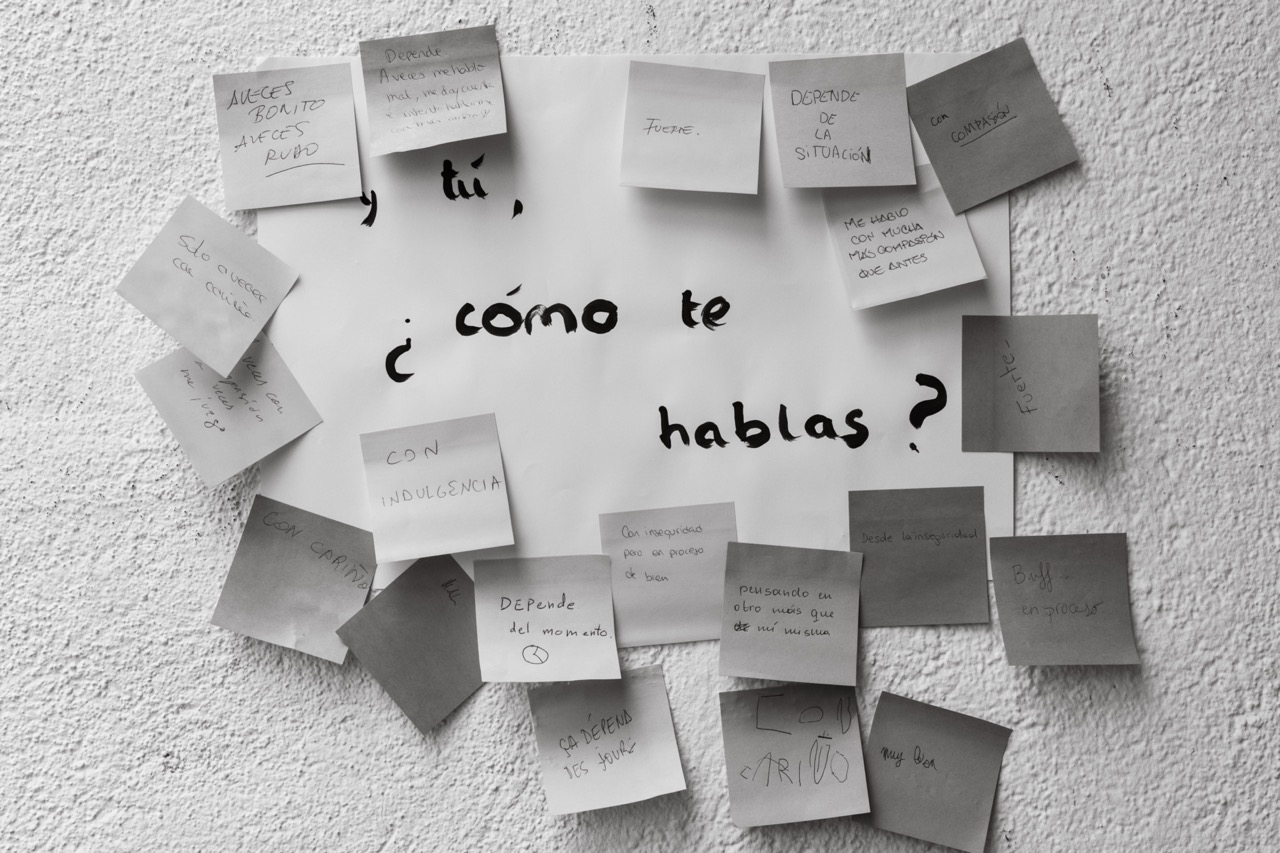 AVECES
BONITO
AVECES
RUDO
Depende
A veces me hablo
mal, me doy cuenta
e intento hablarme
con más
FUERTE.
DEPENDE
DE
LA
SITUACIÓN
con
COMPASIÓN
y tú,
ME HABLO
CON MUCHA
MÁS COMPASIÓN
QUE ANTES
Sólo a veces
con cariño
¿cómo te
hablas?
Fuerte-
veces con
a veces
me juzgo
CON
INDULGENCIA
CON CARIÑO
Con inseguridad
pero en proceso
de bien
Desde la inseguridad
Buff-
en proceso
DEPende
del momento.
pensando en
otro más que
de mí misma
ÇA DÉPEND
DES JOURS
CON
CARIÑO
muy bien